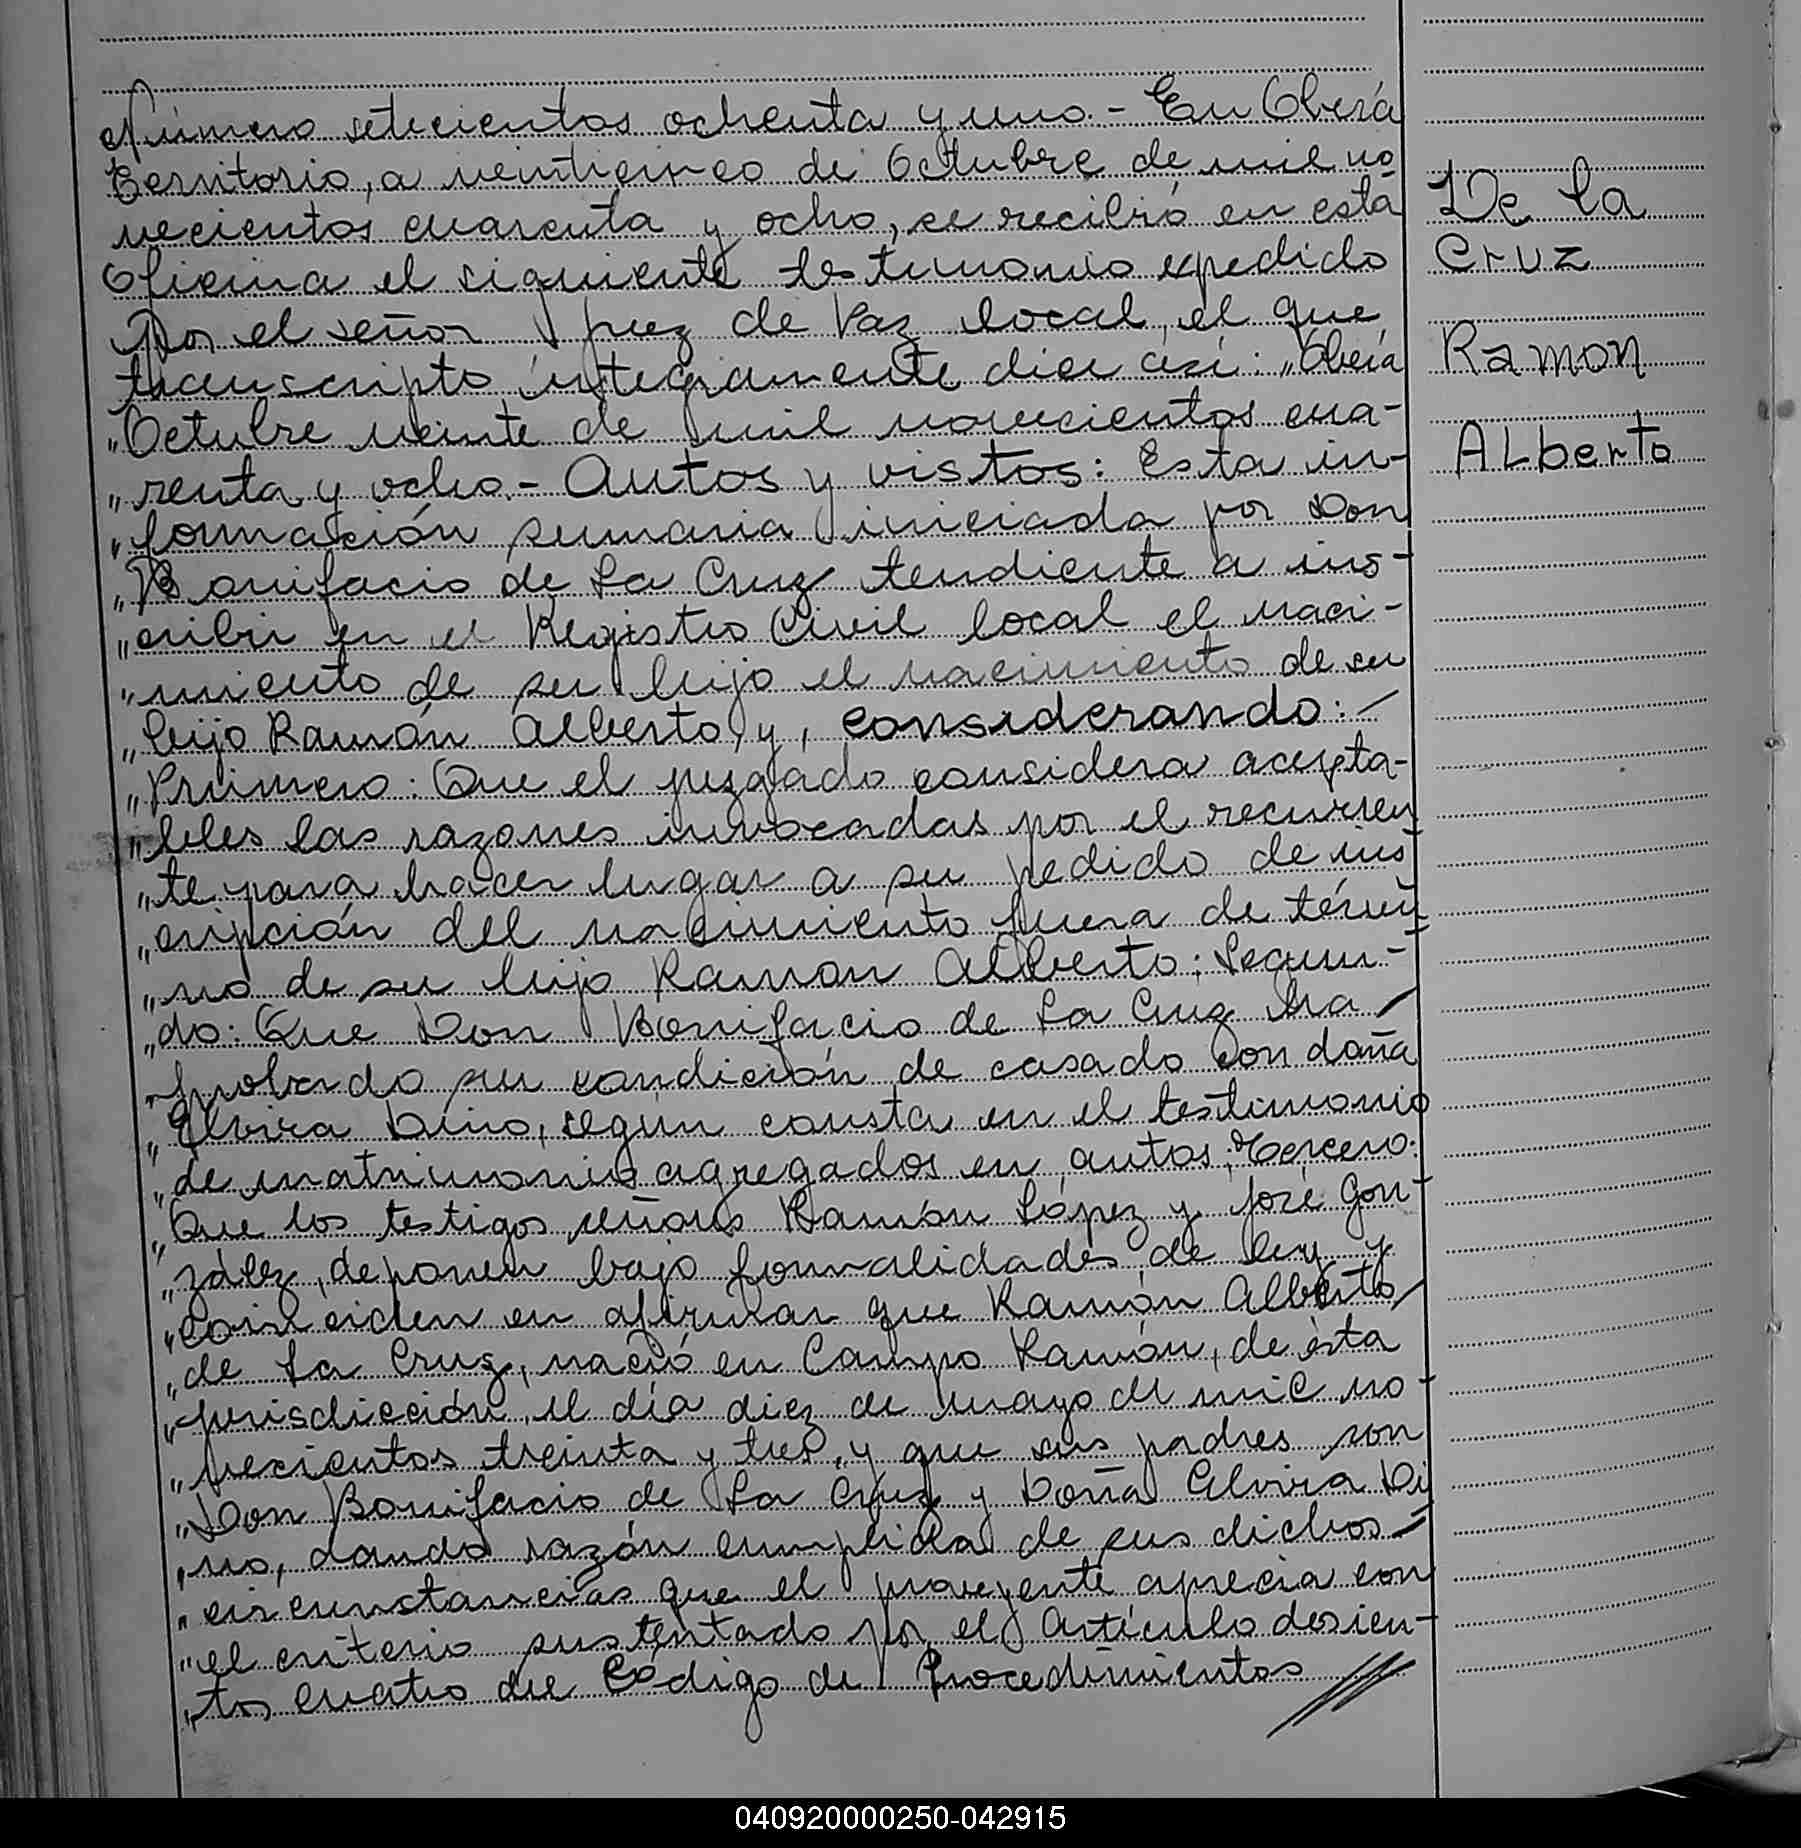 Número setecientos ochenta y uno.- En Oberá
Territorio, a veinticinco de Octubre de mil no
vecientos cuarenta y ocho, se recibió en esta
Oficina el siguiente testimonio expedido
Por el señor juez de Paz local, el que
transcripto íntegramente dice así: "Oberá
"Octubre veinte de mil novecientos cua-
"renta y ocho.- Autos y vistos: Esta in-
"formación sumaria iniciada por Don
"Bonifacio de La Cruz tendiente a ins-
"cribir en el Registro Civil local el naci-
"miento de su hijo el nacimiento de su
"hijo Ramón Alberto, y, considerando:-
"Primero: Que el juzgado considera acepta-
"bles las razones invocadas por el recurren
"te para hacer lugar a su pedido de ins
"cripción del nacimiento fuera de térmi
"no de su hijo Ramon Alberto; Segun-
"do: Que Don Bonifacio de La Cruz ha
"probado su condición de casado con doña
"Elvira Dino, según consta en el testimonio
"de matrimonio agregados en autos; Tercero:
"Que los testigos señores Ramón López y José Gon-
"zález, deponen bajo formalidades de ley y
"coinciden en afirmar que Ramón Alberto
"de La Cruz, nació en Campo Ramón, de ésta
"jurisdicción, el día diez de mayo de mil no-
"vecientos treinta y tres, y que sus padres son
"Don Bonifacio de La Cruz y Doña Elvira Di
"no, dando razón cumplida de sus dichos-
"circunstancias que el proveyente aprecia con
"el criterio sustentado por el Artículo doscien-
"tos cuatro del Código de Procedimientos
De La
Cruz
Ramon
ALberto
040920000250-042915